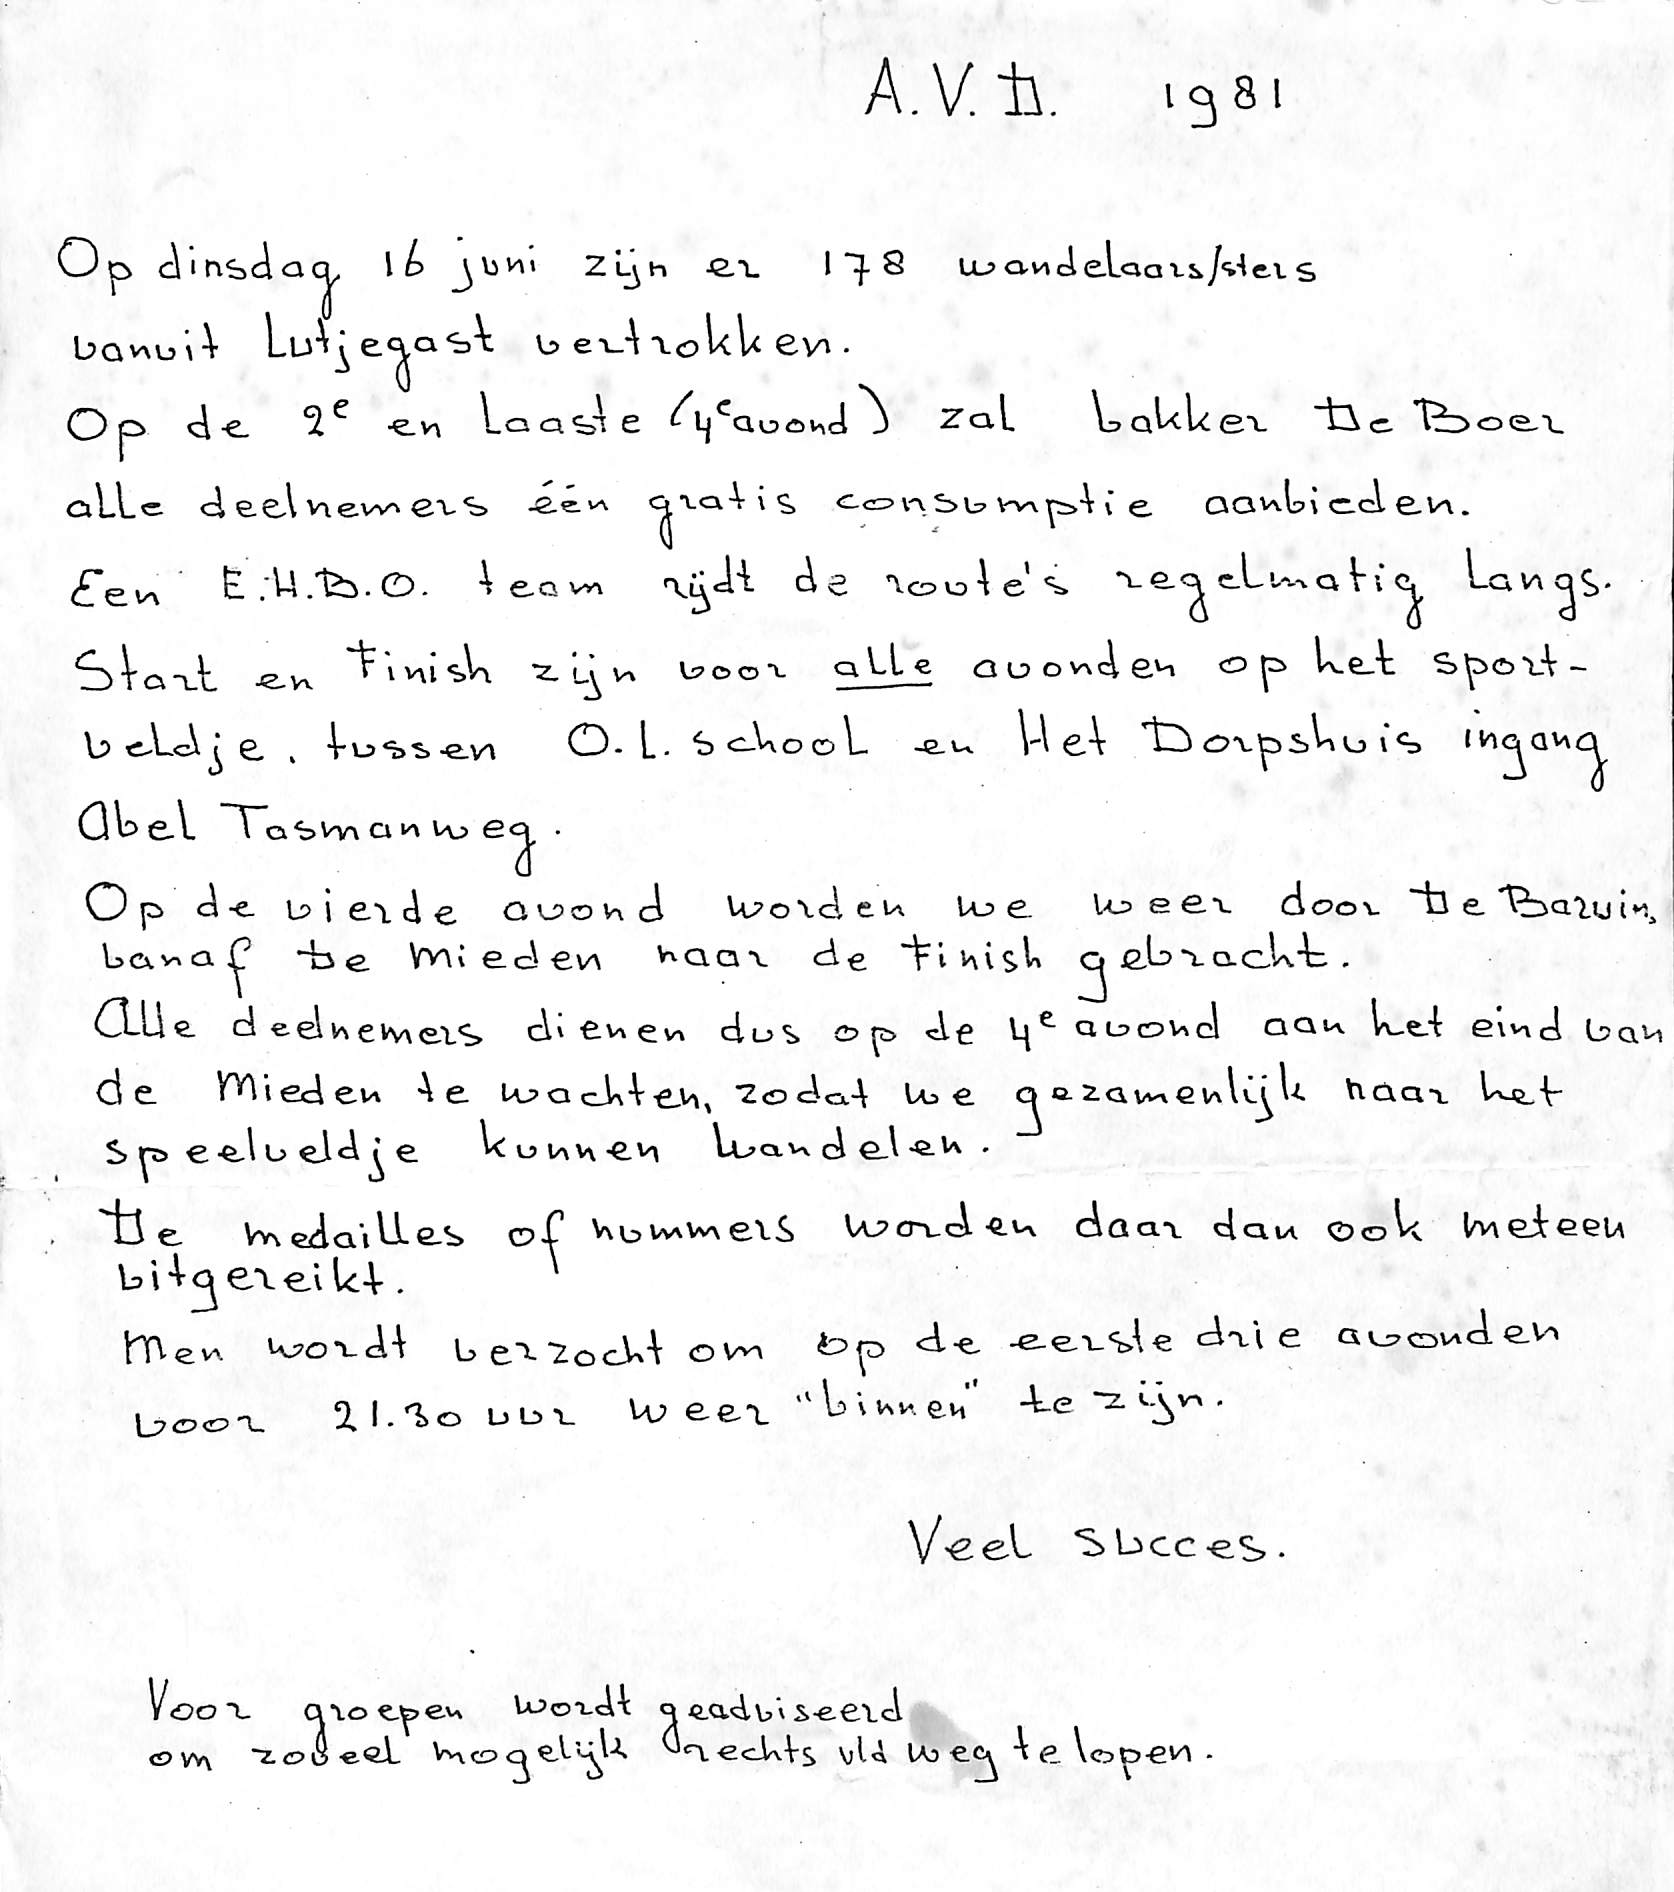 A.V.D. 1981
Op dinsdag 16 juni zijn er 178 wandelaars/sters
vanuit Lutjegast vertrokken.
Op de 2e en Laaste (4e avond) zal bakker De Boer
alle deelnemers één gratis consumptie aanbieden.
Een E.H.B.O. team rijdt de route's regelmatig langs.
Start en Finish zijn voor alle avonden op het sport-
veldje. tussen O.L. school en Het Dorpshuis ingang
Abel Tasmanweg.
Op de vierde avond worden we weer door De Bazuin,
vanaf De Mieden naar de Finish gebracht.
Alle deelnemers dienen dus op de 4e avond aan het eind van
de Mieden te wachten, zodat we gezamenlijk naar het
speelveldje kunnen wandelen.
De medailles of nummers worden daar dan ook meteen
uitgereikt.
Men wordt verzocht om op de eerste drie avonden
voor 21.30 uur weer "binnen" te zijn.
Veel succes.
Voor groepen wordt geadviseerd
om zoveel mogelijk rechts v/d weg te lopen.